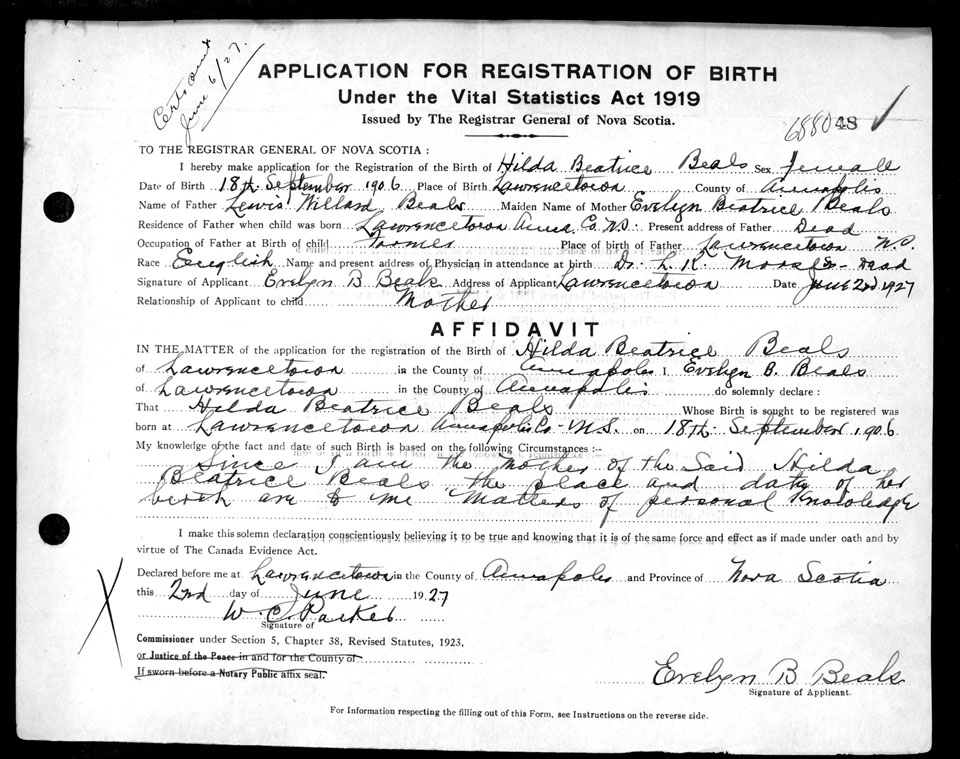 Certs out
June 6/27.
APPLICATION FOR REGISTRATION OF BIRTH
Under the Vital Statistics Act 1919
Issued by The Registrar General of Nova Scotia.
688048
TO THE REGISTRAR GENERAL OF NOVA SCOTIA :
I hereby make application for the Registration of the Birth of Hilda Beatrice Beals Sex Female
Date of Birth 18th September 1906 Place of Birth Lawrencetown County of Annapolis
Name of Father Lewis Willard Beals Maiden Name of Mother Evelyn Beatrice Beals
Residence of Father when child was born Lawrencetown Anna. Co. N.S. Present address of Father Dead
Occupation of Father at Birth of child Farmer Place of birth of Father Lawrencetown N.S.
Race English Name and present address of Physician in attendance at birth Dr. L. R. Morse - Dead
Signature of Applicant Evelyn B Beals Address of Applicant Lawrencetown Date June 2nd 1927
Relationship of Applicant to child Mother
AFFIDAVIT
IN THE MATTER of the application for the registration of the Birth of Hilda Beatrice Beals
of Lawrencetown in the County of Annapolis I Evelyn B. Beals
of Lawrencetown in the County of Annapolis do solemnly declare :
That Hilda Beatrice Beals Whose Birth is sought to be registered was
born at Lawrencetown Annapolis Co - N.S. on 18th September 1906
My knowledge of the fact and date of such Birth is based on the following Circumstances :-
Since I am the mother of the said Hilda
Beatrice Beals the place and date of her
birth are to me matters of personal Knowledge
I make this solemn declaration conscientiously believing it to be true and knowing that it is of the same force and effect as if made under oath and by
virtue of The Canada Evidence Act.
Declared before me at Lawrencetown in the County of Annapolis and Province of Nova Scotia
this 2nd day of June 1927
W. C. Parker
Signature of
Commissioner under Section 5, Chapter 38, Revised Statutes, 1923,
or Justice of the Peace in and for the County of
If sworn before a Notary Public affix seal.
Evelyn B Beals
Signature of Applicant.
For Information respecting the filling out of this Form, see Instructions on the reverse side.